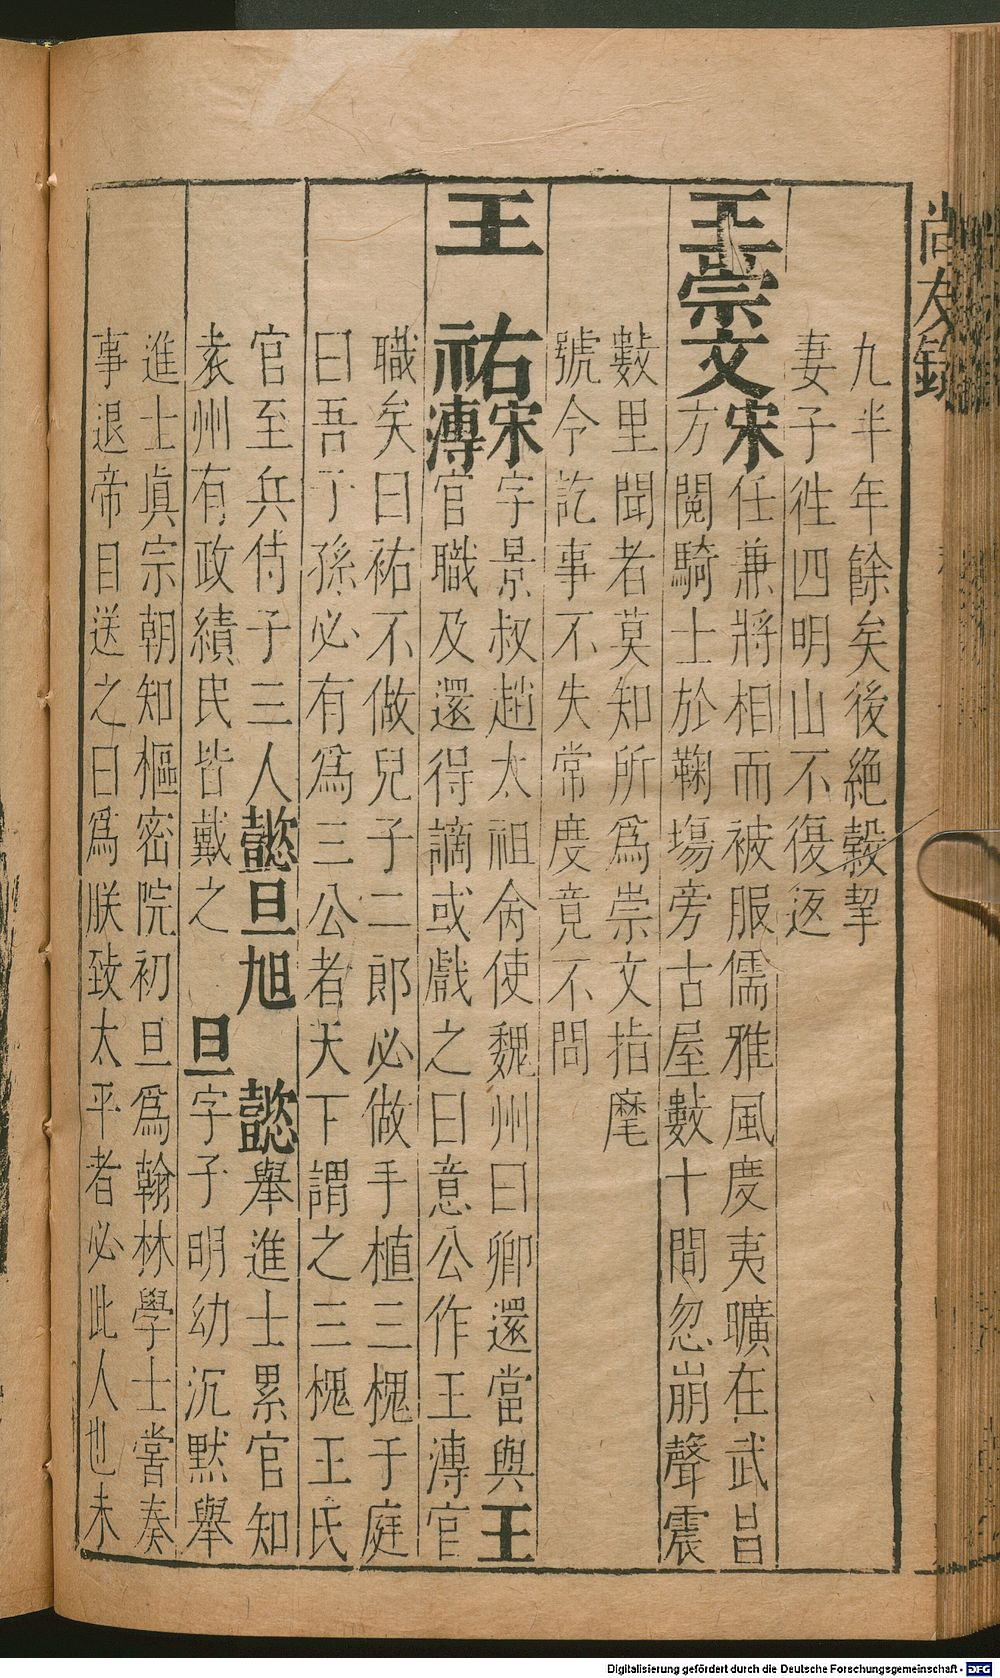 尚友錄
九半年餘矣後絶穀挈
妻子徃四明山不復返
王崇文宋任兼將相而被服儒雅風度夷曠在武昌
方閱騎士於鞠塲旁古屋數十間忽崩聲震
數里聞者莫知所爲崇文指麾
號令訖事不失常度竟不問
王　祐宋字景叔趙太祖侖使魏州曰卿還當與王
溥官職及還得謫或戲之曰意公作王溥官
職矣曰祐不做兒子二郎必做手植三槐于庭
曰吾子孫必有爲三公者天下謂之三槐王氏
官至兵侍子三人懿旦旭　懿舉進士累官知
袁州有政績民皆戴之　旦字子明幼沉默舉
進士眞宗朝知樞密院初旦爲翰林學士嘗奏
事退帝目送之曰爲朕致太平者必此人也未
Digitalisierung gefördert durch die Deutsche Forschungsgemeinschaft - DFG